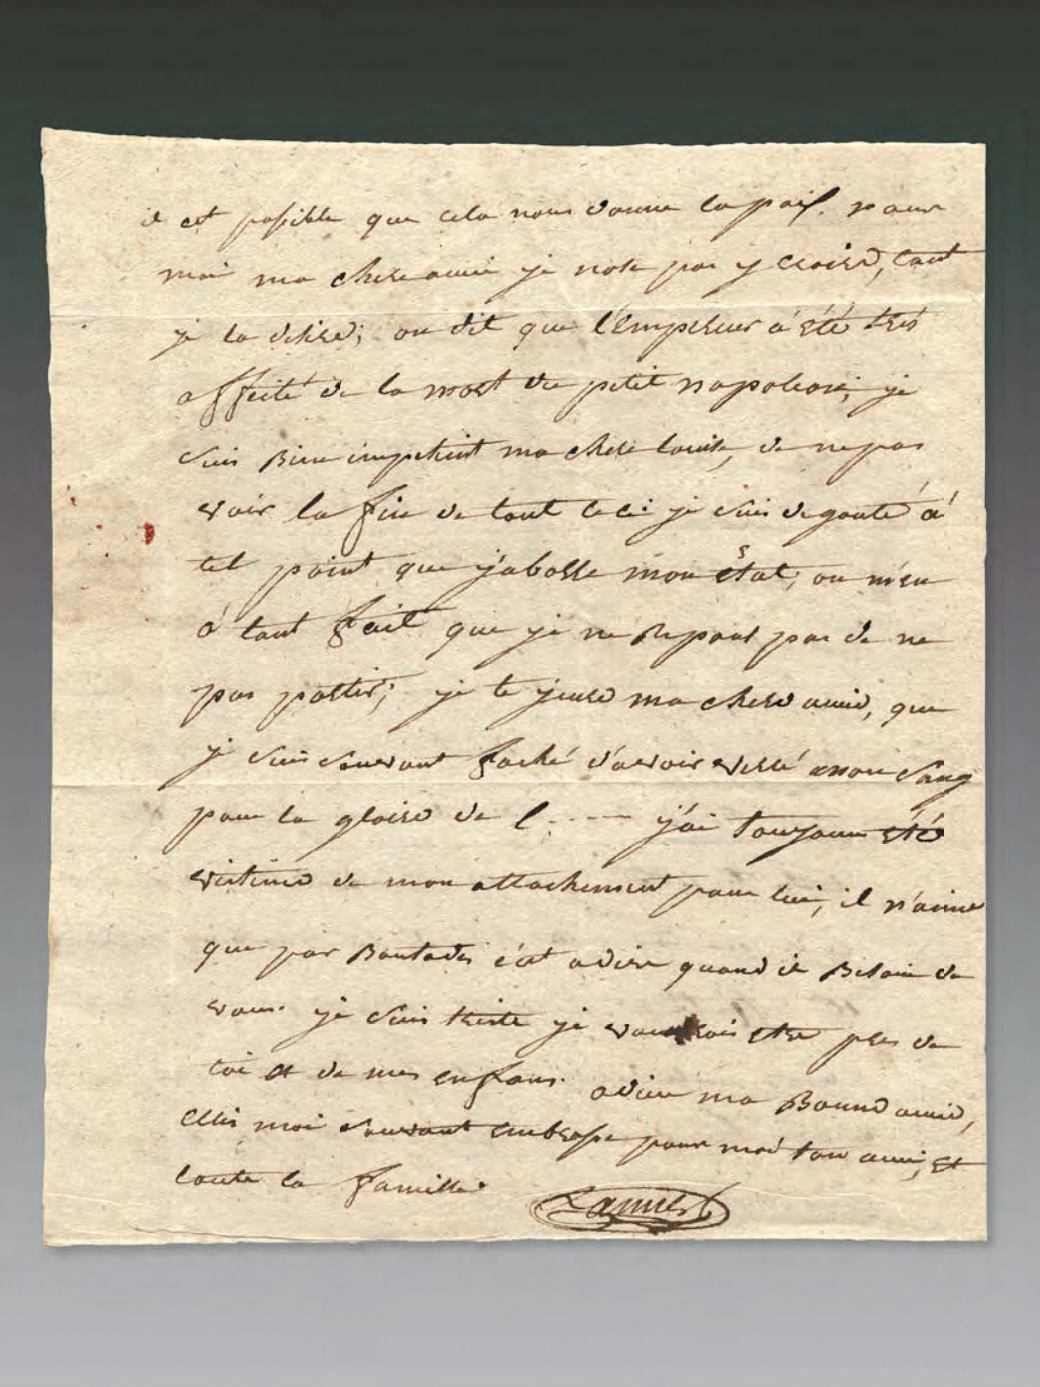 il est possible que cela nous donne la paix. pour
moi ma chere amie je nose pas y croire, tant
je la desire; on dit que l'Empereur a été tres
affecté de la mort du petit napoleon; je
suis bien impatient ma chere louise, de ne pas
voir la fin de tout ceci je suis degouté à
tel point que j'aborre mon état; on m'en
a tant fait que je ne repont pas de ne
pas partir; je te jeure ma chere amie, que
je suis souvant faché d'avoir versé mon sang
pour la gloire de l..... j'ai toujour été
victime de mon attachement pour lui, il n'aime
que par boutades c'est a dire quand il besoin de
vous. je suis triste je voudrois etre pres de
toi et de mes enfans. adieu ma bonne amie,
moi souvant embrasse pour moi ton ami, et
toute la famille.
Lannes